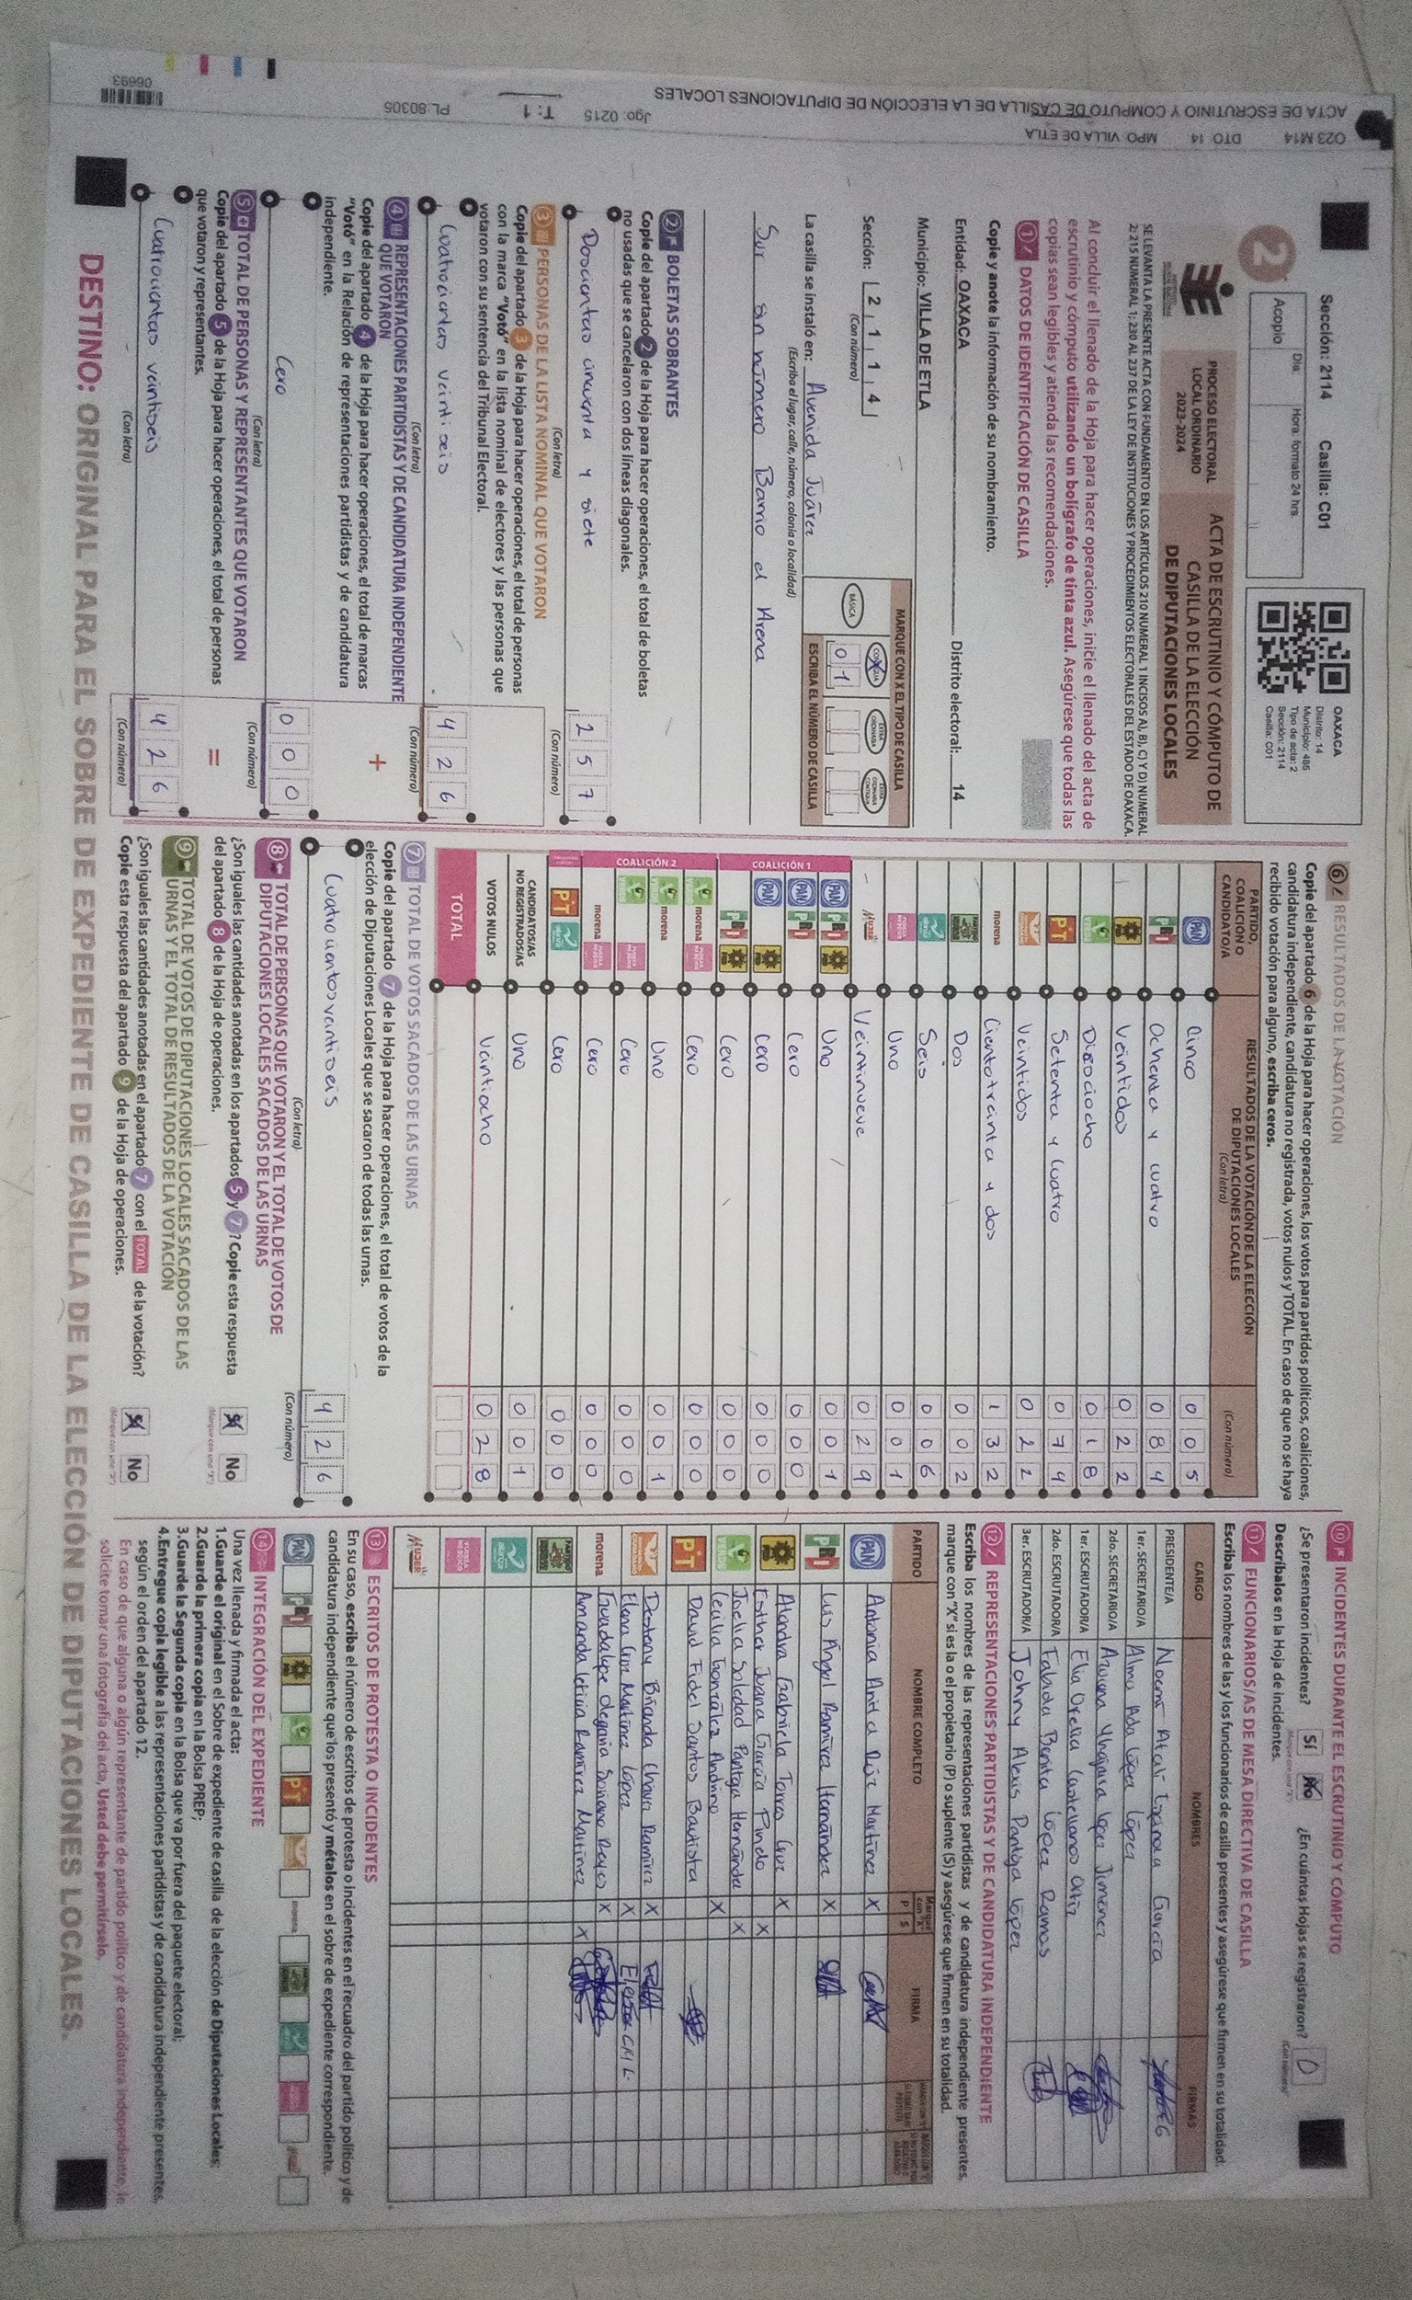 ACTA DE ESCRUTINIO Y CÓMPUTO DE CASILLA DE LA ELECCIÓN DE DIPUTACIONES LOCALES
O23 M14 DTO 14 MPO VILLA DE ETLA
Jgo: 0215
T: 1
PL:80305
06693
Sección: 2114 Casilla: C01
2
Día: Hora: formato 24 hrs.
Acopio
OAXACA
Distrito: 14
Municipio: 485
Tipo de acta: 2
Sección: 2114
Casilla: C01
PROCESO ELECTORAL
LOCAL ORDINARIO
2023-2024
ACTA DE ESCRUTINIO Y CÓMPUTO DE
CASILLA DE LA ELECCIÓN
DE DIPUTACIONES LOCALES
SE LEVANTA LA PRESENTE ACTA CON FUNDAMENTO EN LOS ARTÍCULOS 210 NUMERAL 1 INCISOS A), B), C) Y D) NUMERAL
2; 215 NUMERAL 1; 230 AL 237 DE LA LEY DE INSTITUCIONES Y PROCEDIMIENTOS ELECTORALES DEL ESTADO DE OAXACA.
Al concluir el llenado de la Hoja para hacer operaciones, inicie el llenado del acta de
escrutinio y cómputo utilizando un bolígrafo de tinta azul. Asegúrese que todas las
copias sean legibles y atienda las recomendaciones.
1 DATOS DE IDENTIFICACIÓN DE CASILLA
Copie y anote la información de su nombramiento.
Entidad: OAXACA Distrito electoral: 14
Municipio: VILLA DE ETLA
Sección: 2 1 1 4
(Con número)
MARQUE CON X EL TIPO DE CASILLA
BÁSICA
0 1
ESCRIBA EL NÚMERO DE CASILLA
La casilla se instaló en: Avenida Juárez
(Escriba el lugar, calle, número, colonia o localidad)
Sur sin número Barrio d Arena
2 BOLETAS SOBRANTES
Copie del apartado 2 de la Hoja para hacer operaciones, el total de boletas
no usadas que se cancelaron con dos líneas diagonales.
Doscientas cincuenta y siete 2 5 7
(Con letra) (Con número)
3 PERSONAS DE LA LISTA NOMINAL QUE VOTARON
Copie del apartado 3 de la Hoja para hacer operaciones, el total de personas
con la marca "Votó" en la lista nominal de electores y las personas que
votaron con su sentencia del Tribunal Electoral.
Cuatrocientos veintiseis 4 2 6
(Con letra) (Con número)
4 REPRESENTACIONES PARTIDISTAS Y DE CANDIDATURA INDEPENDIENTE
QUE VOTARON
Copie del apartado 4 de la Hoja para hacer operaciones, el total de marcas
"Votó" en la Relación de representaciones partidistas y de candidatura
independiente.
+
Cero 0 0 0
(Con letra) (Con número)
5 TOTAL DE PERSONAS Y REPRESENTANTES QUE VOTARON
Copie del apartado 5 de la Hoja para hacer operaciones, el total de personas
que votaron y representantes.
=
Cuatrocientos veintiseis 4 2 6
(Con letra) (Con número)
6 RESULTADOS DE LA VOTACIÓN
Copie del apartado 6 de la Hoja para hacer operaciones, los votos para partidos políticos, coaliciones,
candidatura independiente, candidatura no registrada, votos nulos y TOTAL. En caso de que no se haya
recibido votación para alguno, escriba ceros.
PARTIDO, COALICIÓN O CANDIDATO/A
RESULTADOS DE LA VOTACIÓN DE LA ELECCIÓN DE DIPUTACIONES LOCALES
(Con letra) (Con número)
PAN Cinco 0 0 5
PRI Ochenta y cuatro 0 8 4
Veintidos 0 2 2
Dieciocho 0 1 8
PT Setenta y cuatro 0 7 4
Veintidos 0 2 2
morena Cientotreinta y dos 1 3 2
Dos 0 0 2
Seis 0 0 6
Uno 0 0 1
Mujer Veintinueve 0 2 9
COALICIÓN 1
PAN PRI Uno 0 0 1
PAN PRI Cero 0 0 0
PAN Cero 0 0 0
PRI Cero 0 0 0
COALICIÓN 2
morena Cero 0 0 0
morena Uno 0 0 1
Cero 0 0 0
morena Cero 0 0 0
PT Cero 0 0 0
CANDIDATOS/AS NO REGISTRADOS/AS Uno 0 0 1
VOTOS NULOS Veintiocho 0 2 8
TOTAL
7 TOTAL DE VOTOS SACADOS DE LAS URNAS
Copie del apartado 7 de la Hoja para hacer operaciones, el total de votos de la
elección de Diputaciones Locales que se sacaron de todas las urnas.
Cuatrocientos veintiseis 4 2 6
(Con letra) (Con número)
8 TOTAL DE PERSONAS QUE VOTARON Y EL TOTAL DE VOTOS DE
DIPUTACIONES LOCALES SACADOS DE LAS URNAS
¿Son iguales las cantidades anotadas en los apartados 5 y 7? Copie esta respuesta
del apartado 8 de la Hoja de operaciones.
Sí No
9 TOTAL DE VOTOS DE DIPUTACIONES LOCALES SACADOS DE LAS
URNAS Y EL TOTAL DE RESULTADOS DE LA VOTACIÓN
¿Son iguales las cantidades anotadas en el apartado 7 con el TOTAL de la votación?
Copie esta respuesta del apartado 9 de la Hoja de operaciones.
Sí No
10 INCIDENTES DURANTE EL ESCRUTINIO Y CÓMPUTO
¿Se presentaron incidentes? Sí No ¿En cuántas Hojas se registraron? 0
Descríbalos en la Hoja de incidentes.
11 FUNCIONARIOS/AS DE MESA DIRECTIVA DE CASILLA
Escriba los nombres de las y los funcionarios de casilla presentes y asegúrese que firmen en su totalidad.
CARGO NOMBRES FIRMAS
PRESIDENTE/A Noemi Atali García
1er. SECRETARIO/A Alma Ada López López
2do. SECRETARIO/A López Jimenez
1er. ESCRUTADOR/A Elia Ofelia Castellanos Ortiz
2do. ESCRUTADOR/A Fabiola Benita López Ramos
3er. ESCRUTADOR/A Johny Alexis Pantoja López
12 REPRESENTACIONES PARTIDISTAS Y DE CANDIDATURA INDEPENDIENTE
Escriba los nombres de las representaciones partidistas y de candidatura independiente presentes,
marque con "X" si es la o el propietario (P) o suplente (S) y asegúrese que firmen en su totalidad.
PARTIDO NOMBRE COMPLETO P S FIRMA
PAN Antonia Anita Ruiz Martinez X
PRI Luis Angel Ramirez Hernández X
Alondra Gabriela Torres Cruz X
Esther Juana García Pinelo X
Joelia Soledad Pantoja Hernández X
VERDE Cecilia González Andrino X
PT David Fidel Santos Bautista
Destany Chavez Ramirez X
Elena Cruz Martinez López X
morena Guadalupe Soriano Reyes X
Amanda Leticia Ramirez Martinez X
Mujer
13 ESCRITOS DE PROTESTA O INCIDENTES
En su caso, escriba el número de escritos de protesta o incidentes en el recuadro del partido político y de
candidatura independiente que los presentó y métalos en el sobre de expediente correspondiente.
PAN PRI PT morena
14 INTEGRACIÓN DEL EXPEDIENTE
Una vez llenada y firmada el acta:
1.Guarde el original en el Sobre de expediente de casilla de la elección de Diputaciones Locales;
2.Guarde la primera copia en la Bolsa PREP;
3.Guarde la Segunda copia en la Bolsa que va por fuera del paquete electoral;
4.Entregue copia legible a las representaciones partidistas y de candidatura independiente presentes,
según el orden del apartado 12.
En caso de que alguna o algún representante de partido político y de candidatura independiente, le
solicite tomar una fotografía del acta, Usted debe permitírselo.
DESTINO: ORIGINAL PARA EL SOBRE DE EXPEDIENTE DE CASILLA DE LA ELECCIÓN DE DIPUTACIONES LOCALES.